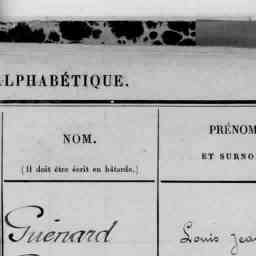 ALPHABÉTIQUE.
NOM.
(Il doit être écrit en bâtarde.)
PRÉNOM
ET SURNO
Guénard
Louis Jea